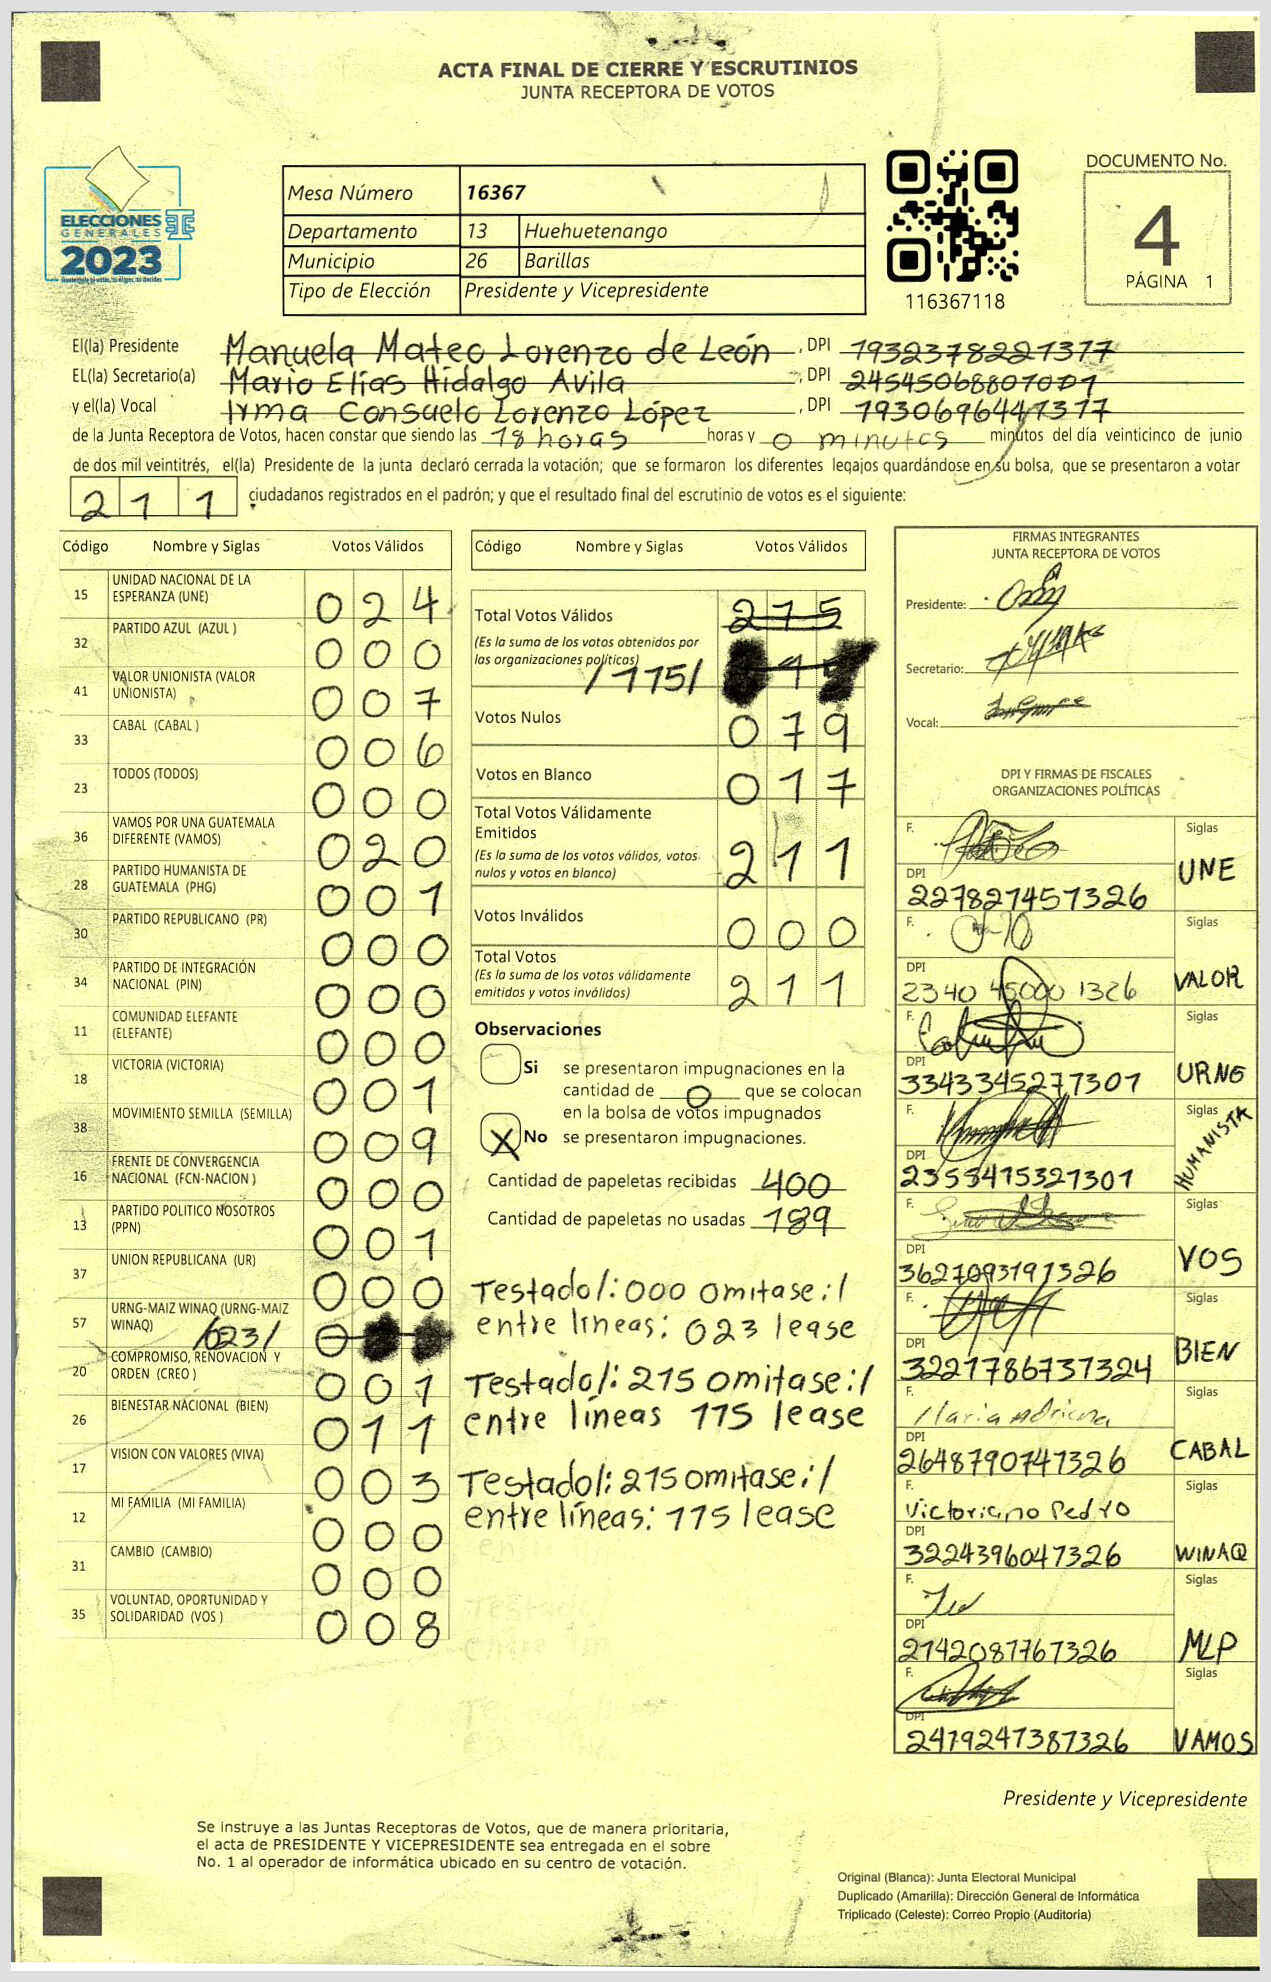 ACTA FINAL DE CIERRE Y ESCRUTINIOS
JUNTA RECEPTORA DE VOTOS
ELECCIONES
GENERALES
2023
Mesa Número 16367
Departamento 13 Huehuetenango
Municipio 26 Barillas
Tipo de Elección Presidente y Vicepresidente
116367118
DOCUMENTO No.
4
PÁGINA 1
El(la) Presidente Manuela Mateo Lorenzo de León, DPI 1932378221377
EL(la) Secretario(a) Mario Elías Hidalgo Avila, DPI 24545068807071
y el(la) Vocal Irma Consuelo Lorenzo López, DPI 1930696441377
de la Junta Receptora de Votos, hacen constar que siendo las 18 horas horas y 0 minutos minutos del día veinticinco de junio
de dos mil veintitrés, el(la) Presidente de la junta declaró cerrada la votación; que se formaron los diferentes legajos guardándose en su bolsa, que se presentaron a votar
211 ciudadanos registrados en el padrón; y que el resultado final del escrutinio de votos es el siguiente:
Código Nombre y Siglas Votos Válidos
15 UNIDAD NACIONAL DE LA ESPERANZA (UNE) 024
32 PARTIDO AZUL (AZUL ) 000
41 VALOR UNIONISTA (VALOR UNIONISTA) 007
33 CABAL (CABAL ) 006
23 TODOS (TODOS) 000
36 VAMOS POR UNA GUATEMALA DIFERENTE (VAMOS) 020
28 PARTIDO HUMANISTA DE GUATEMALA (PHG) 001
30 PARTIDO REPUBLICANO (PR) 000
34 PARTIDO DE INTEGRACIÓN NACIONAL (PIN) 000
11 COMUNIDAD ELEFANTE (ELEFANTE) 000
18 VICTORIA (VICTORIA) 001
38 MOVIMIENTO SEMILLA (SEMILLA) 009
16 FRENTE DE CONVERGENCIA NACIONAL (FCN-NACION ) 000
13 PARTIDO POLITICO NOSOTROS (PPN) 001
37 UNION REPUBLICANA (UR) 000
57 URNG-MAIZ WINAQ (URNG-MAIZ WINAQ) /023/ 0
20 COMPROMISO, RENOVACION Y ORDEN (CREO ) 001
26 BIENESTAR NACIONAL (BIEN) 011
17 VISION CON VALORES (VIVA) 003
12 MI FAMILIA (MI FAMILIA) 000
31 CAMBIO (CAMBIO) 000
35 VOLUNTAD, OPORTUNIDAD Y SOLIDARIDAD (VOS ) 008
Código Nombre y Siglas Votos Válidos
Total Votos Válidos 275
(Es la suma de los votos obtenidos por
las organizaciones políticas) /115/
Votos Nulos 079
Votos en Blanco 017
Total Votos Válidamente
Emitidos
(Es la suma de los votos válidos, votos
nulos y votos en blanco) 211
Votos Inválidos 000
Total Votos
(Es la suma de los votos válidamente
emitidos y votos inválidos) 211
Observaciones
Si se presentaron impugnaciones en la
cantidad de 0 que se colocan
en la bolsa de votos impugnados
X No se presentaron impugnaciones.
Cantidad de papeletas recibidas 400
Cantidad de papeletas no usadas 189
Testado/: 000 omitase:/
entre líneas: 023 lease
Testado/: 215 omitase:/
entre líneas 115 lease
Testado/: 215 omitase:/
entre líneas: 115 lease
FIRMAS INTEGRANTES
JUNTA RECEPTORA DE VOTOS
Presidente:
Secretario:
Vocal:
DPI Y FIRMAS DE FISCALES
ORGANIZACIONES POLÍTICAS
F. Siglas
DPI 227827457326 UNE
F. Siglas
DPI 2340 45000 1326 VALOR
F. Siglas
DPI 3343345277301 URNG
F. Siglas
DPI 2353415321301 HUMANISTA
F. Siglas
DPI 3627093191326 VOS
F. Siglas
DPI 3221786737324 BIEN
F. Maria Adriana Siglas
DPI 2648790747326 CABAL
F. Victoriano Pedro Siglas
DPI 3224396047326 WINAQ
F. Siglas
DPI 2142087767326 MLP
F. Siglas
DPI 2419247387326 VAMOS
Presidente y Vicepresidente
Se instruye a las Juntas Receptoras de Votos, que de manera prioritaria,
el acta de PRESIDENTE Y VICEPRESIDENTE sea entregada en el sobre
No. 1 al operador de informática ubicado en su centro de votación.
Original (Blanca): Junta Electoral Municipal
Duplicado (Amarilla): Dirección General de Informática
Triplicado (Celeste): Correo Propio (Auditoria)